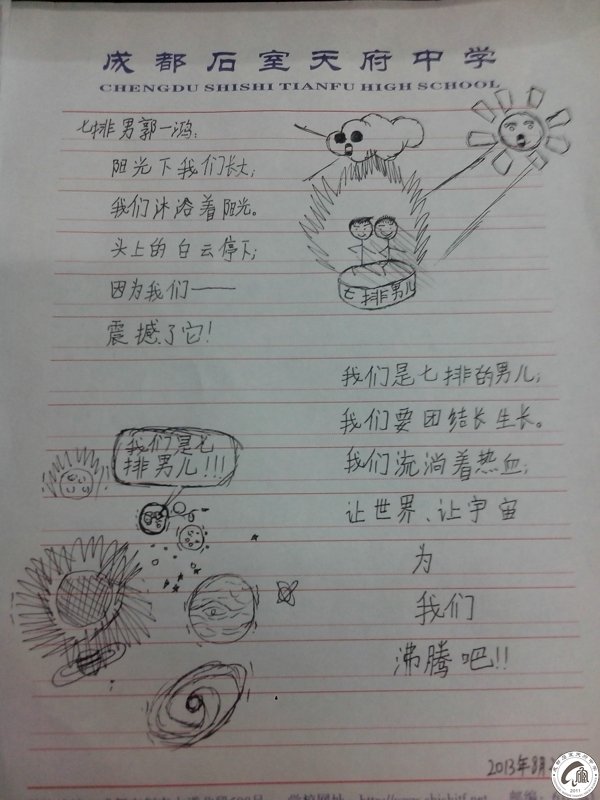 成都石室天府中学
CHENGDU SHISHI TIANFU HIGH SCHOOL
七排男郭一鸿：
阳光下我们长大；
我们沐浴着阳光。
头上的白云停下；
因为我们——
震撼了它！
七排男儿
我们是七排的男儿；
我们要团结长生长。
我们流淌着热血；
让世界、让宇宙
为
我们
沸腾吧!!
我们是七
排男儿!!!
2013年8月
2011
学校网址
邮编